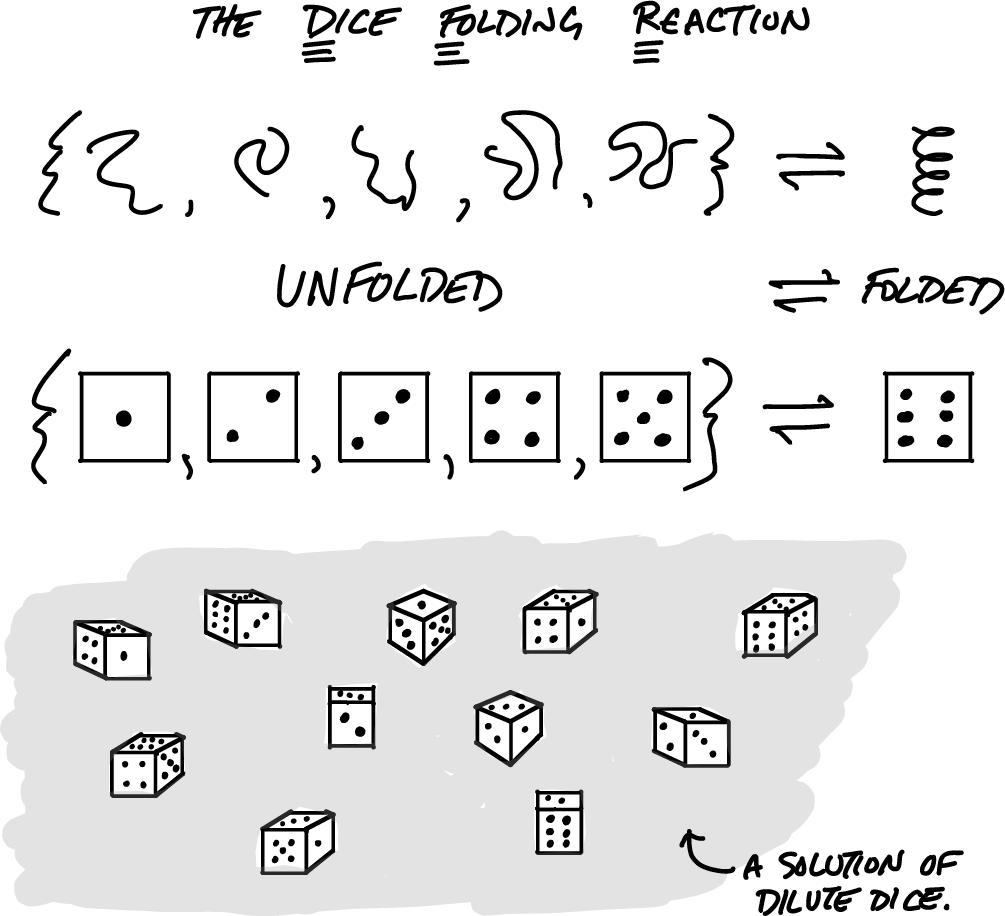 THE DICE FOLDING REACTION
UNFOLDED ⇌ FOLDED
A SOLUTION OF
DILUTE DICE.